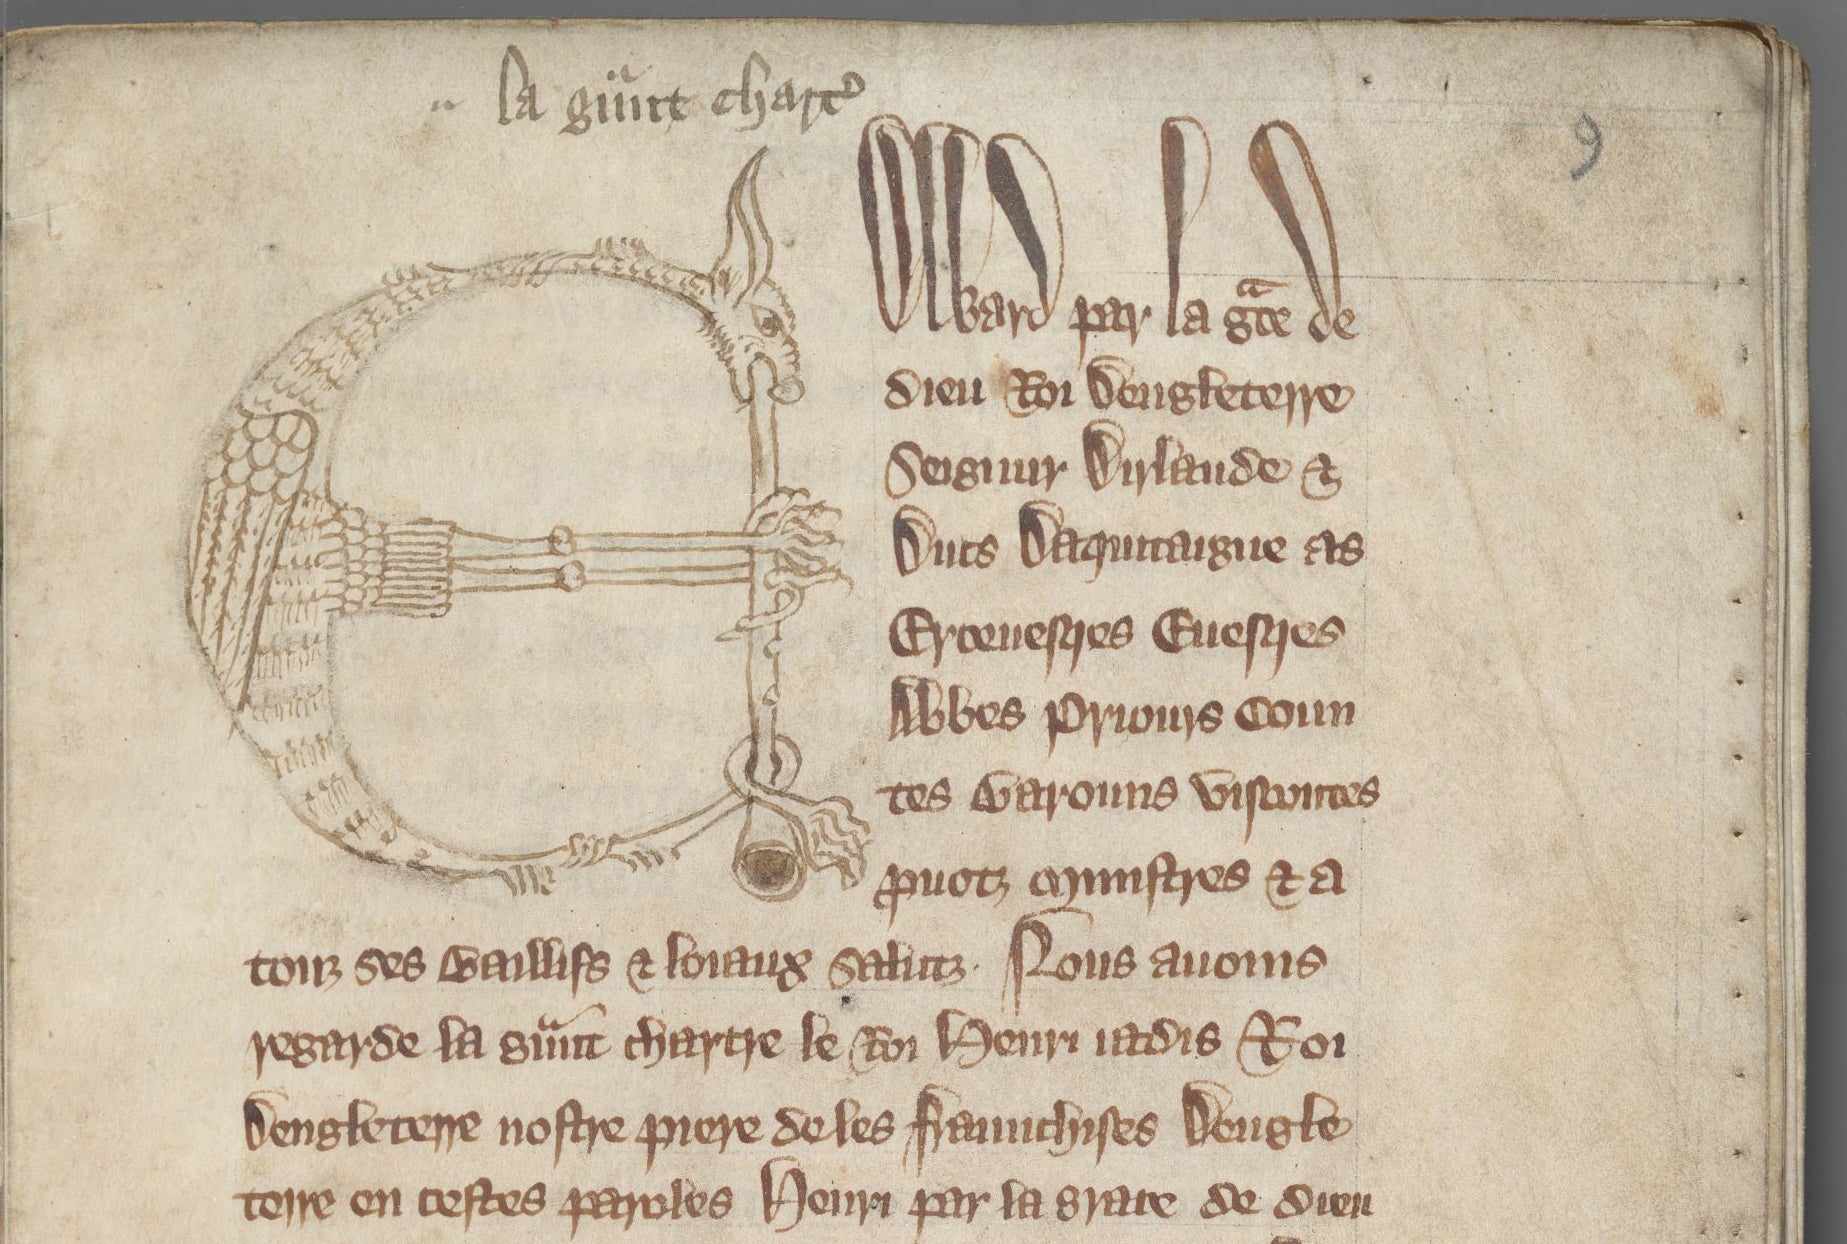 la gͣunt chartͤ
9
Edward par la gͣce de
dieu Roi Dengleterre
Seignur Dirlaunde &
Ducs Daquitaigne as
Erceuesqes Euesqes
Abbes Priours Coun
tes Barouns viscontes
puotz Ministres & a
touz ses Baillifs & loiaux salutz. Nous auoms
regarde la gͣunt chartre le Roi Henri iadis Roi
Dengleterre nostre piere de les fraunchises Dengle
terre en cestes paroles Henri par la grace de dieu